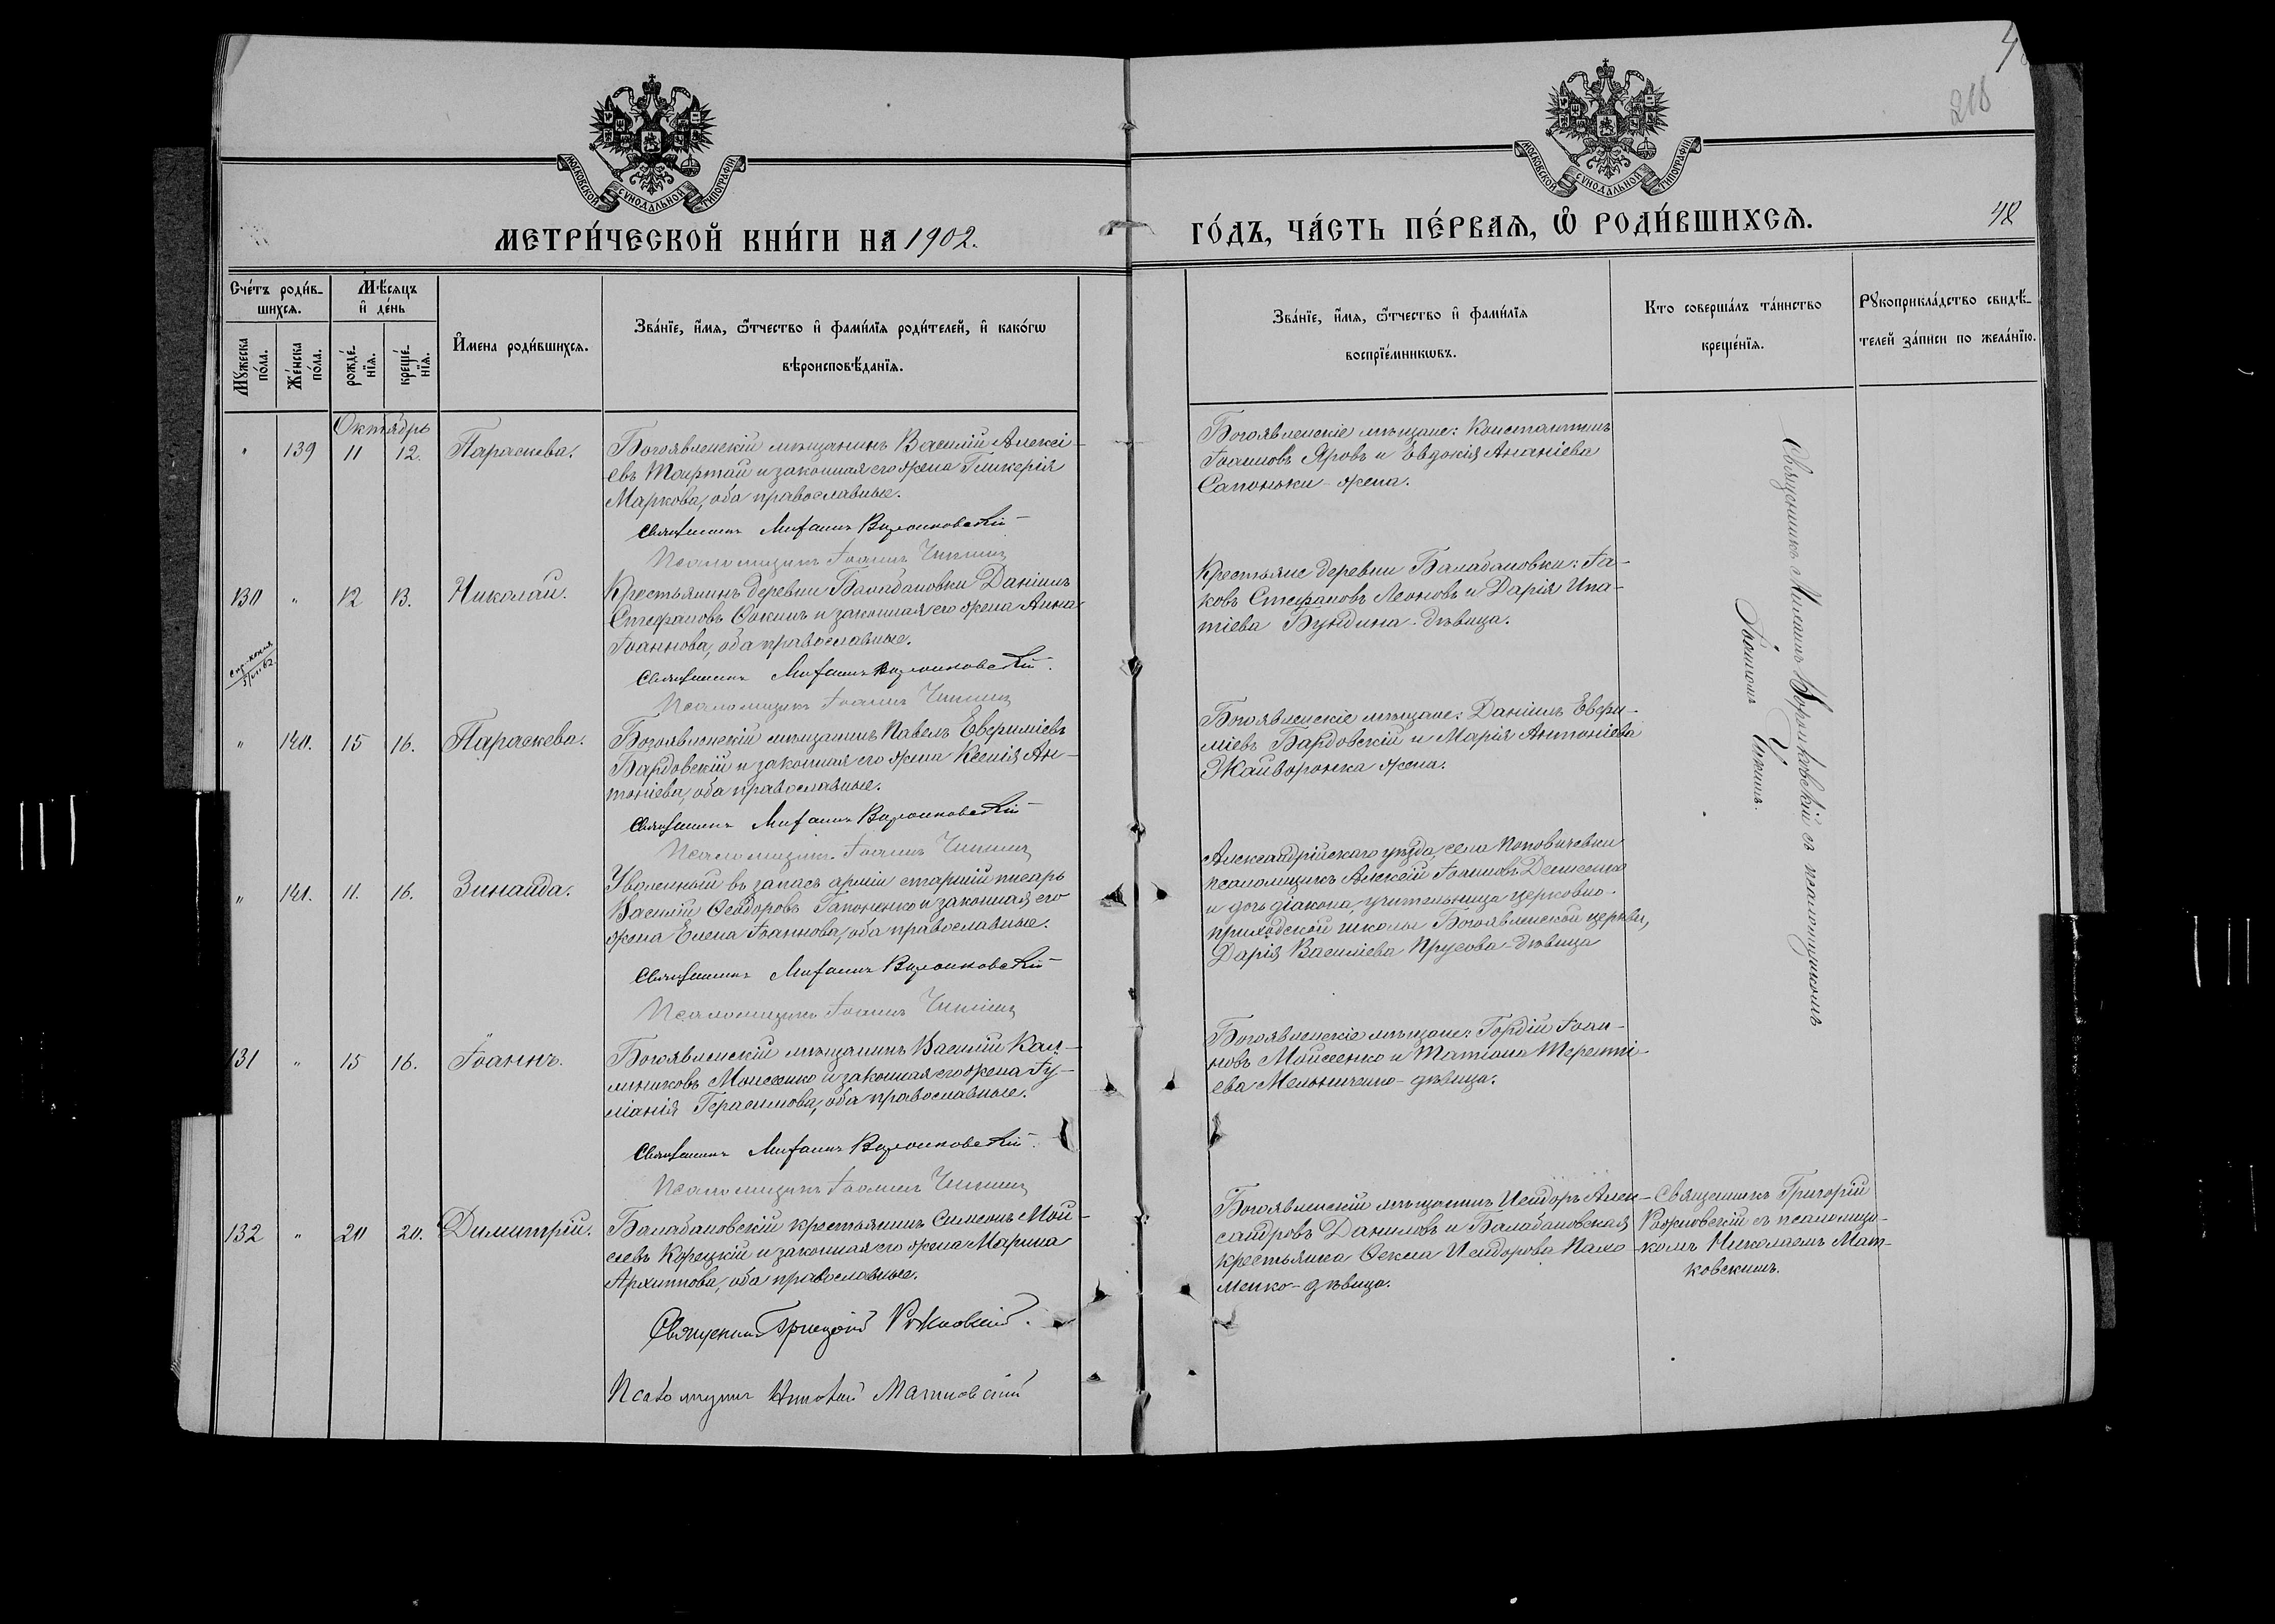 4
218
МОСКОВСКОЙ СѴНОДАЛЬНОЙ ТИПОГРАФІИ
МОСКОВСКОЙ СѴНОДАЛЬНОЙ ТИПОГРАФІИ
МЕТРИ́ЧЕСКОЙ КНИ́ГИ НА 1902.
ГО́ДЪ, ЧА́СТЬ ПЕ́РВАѦ, Ѽ РОДИ́ВШИХСѦ.
48
Сче́тъ роди́в-
шихсѧ.
Мѣ́сѧцъ
и҆ де́нь
Мꙋ́жеска
по́ла.
Же́нска
по́ла.
рожде́-
нїѧ.
креще́-
нїѧ.
И҆́мена роди́вшихсѧ.
Зва́нїе, и҆́мѧ, ѻ҆́тчество и҆ фами́лїѧ роди́телей, и҆ како́гѡ
вѣроисповѣ́данїѧ.
Зва́нїе, и҆́мѧ, ѻ҆́тчество и҆ фами́лїѧ
воспрїе́мникѡвъ.
Кто соверша́лъ та́инство
креще́нїѧ.
Рꙋкоприкла́дство свидѣ́-
телей за́писи по жела́нїю.
Октябрь
" 139 11 12. Параскева.
Богоявленскій мѣщанинъ Василій Алексі-
евъ Тартай и законная его жена Гликерія
Маркова, оба православные.
Священникъ Михаилъ
Псаломщикъ Іоаннъ Чикинъ
Богоявленскіе мѣщане: Константинъ
Іоанновъ Яровъ и Евдокія Ананіева
Сапонька - жена.
130 " 12 13. Николай.
Крестьянинъ деревни Балабановки Даніилъ
Стефановъ Фокинъ и законная его жена Анна
Іоаннова, оба православные.
Священникъ Михаилъ
Псаломщикъ Іоаннъ Чикинъ
Крестьяне деревни Балабановки: Іа-
ковъ Стефановъ Леоновъ и Дарія Ипа-
тіева Бундина - дѣвица.
" 140. 15 16. Параскева.
Богоявленскій мѣщанинъ Павелъ Евѳиміевъ
Бардовскій и законная его жена Ксенія Ан-
тоніева, оба православные.
Священникъ Михаилъ
Псаломщикъ Іоаннъ Чикинъ
Богоявленскіе мѣщане: Даніилъ Евѳи-
міевъ Бардовскій и Марія Антоніева
Жайворонка жена.
" 141. 11. 16. Зинаида.
Уволенный въ запасъ арміи старшій писарь
Василій Ѳеодоровъ Гапоненко и законная его
жена Елена Іоаннова, оба православные.
Священникъ Михаилъ
Псаломщикъ Іоаннъ Чикинъ
Александрійскаго уѣзда, села Поповичевки
псаломщикъ Алексій Іоанновъ Денисенко
и дочь діакона, учительница церковно-
приходской школы Богоявленской церкви,
Дарія Василіева Прусова - дѣвица
131 " 15 16. Іоаннъ.
Богоявленскій мѣщанинъ Василій Кал-
линиковъ Моисеенко и законная его жена Іу-
ліанія Герасимова, оба православные.
Священникъ Михаилъ
Псаломщикъ Іоаннъ Чикинъ
Богоявленскіе мѣщане: Гордій Іоан-
новъ Моисеенко и Татіана Теренті-
ева Мельниченко - дѣвица.
Священникъ Михаилъ съ псаломщикомъ
Іоанномъ Чикинымъ.
132 " 20 20. Димитрій.
Балабановскій крестьянинъ Симеонъ Мои-
сеевъ Корецкій и законная его жена Марина
Архиппова, оба православные.
Священникъ Григорій Рожновскій.
Псаломщикъ Николай Матковскій
Богоявленскій мѣщанинъ Исидоръ Алек-
сандровъ Даниловъ и Балабановская
крестьянка Ѳекла Исидорова Пахо-
менко - дѣвица.
Священникъ Григорій
Рожновскій съ псаломщи-
комъ Николаемъ Мат-
ковскимъ.